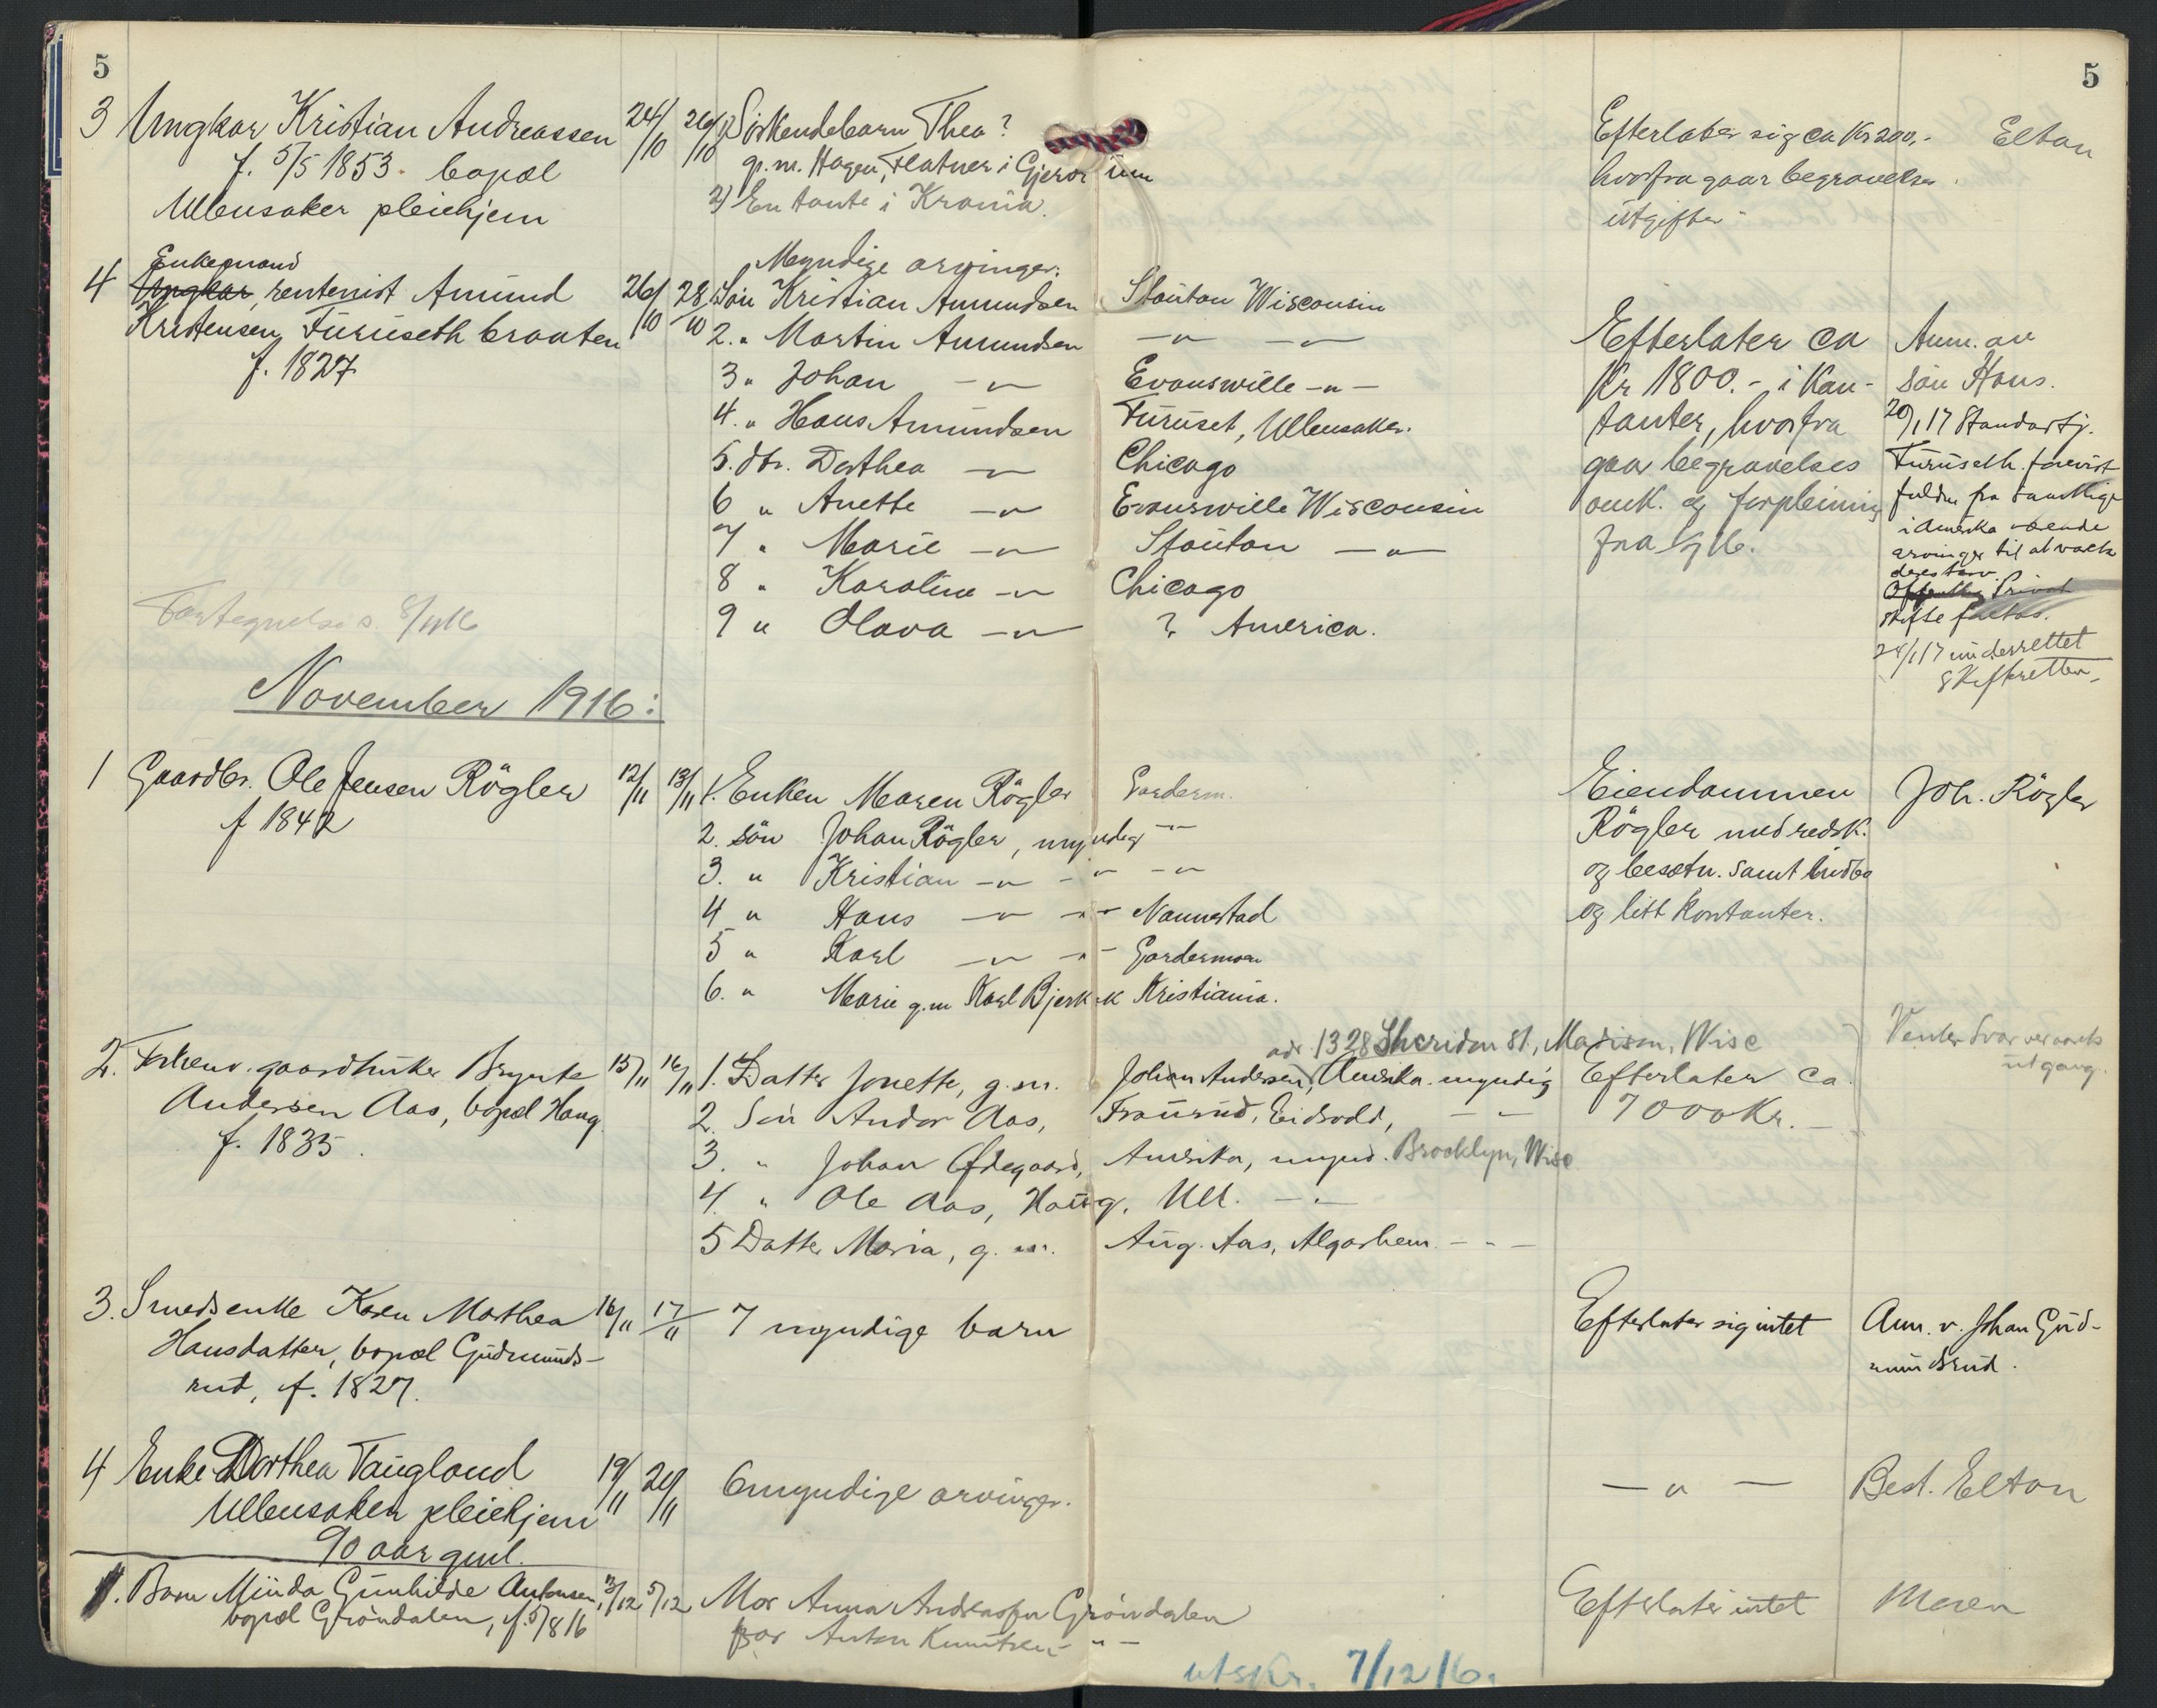 5
5
3 Ungkar Kristian Andreassen 24/10 26/10 1) Søskendebarn Thea? Efterlater sig ca Kr 200,- Elton
f. 5/5 1853. bopæl g.m. Hagen, Flatner i Gjerdrum hvorfra gaar begravelses
Ullensaker pleiehjem 2) En tante i Krania. utgifter
Myndige arvinger:
Enkemand
4 Ungkar, rentenist Amund 26/10 28/10 1. Søn Kristian Amundsen Stouton Wisconsin
Kristensen Furuseth braaten 2. " Martin Amundsen —"— —"— Efterlater ca Anm. av
f. 1827 3 " Johan —"— Evanswille —"— Kr 1800.- i Kon- søn Hans.
4. " Hans Amundsen Furuset, Ullensaker. tanter, hvorfra 20/1 17 Hans
5. dtr. Dorthea —"— Chicago gaar begravelses Furuseth forevist
6 " Anette —"— Evanswille Wisconsin omk. og forpleining fuldm fra samtlige
7 " Marie —"— Stouton —"— fra i Amerika værende
8 " Karoline —"— Chicago arvinger til at vareta
deres tarv.
Fortegnelse s. 8/11 16 9 " Olava —"— ? America. Offentlig Privat
skifte fattes.
24/1 17 underrettet
skifteretten.
November 1916:
1 Gaardbr. Ole Jensen Røgler 12/11 13/11 1. Enken Maren Røgler Garderm. Eiendommen Joh. Røgler
f 1842 2. søn Johan Røgler, myndig —"— Røgler med redsk.
3. " Kristian —"— —"— —"— og besætn. samt indbo
4 " Hans —"— —"— Nannestad og litt kontanter.
5 " Karl —"— —"— Gardermoen
6. " Marie g.m Karl Bjerk Kristiania.
adr. 1328 Sheridan St., Madison, Wisc Venter svar
2. Forhenv. gaardbruker Brynte 15/11 16/11 1. Datter Jonette, g.m. Johan Andersen, Amerika. myndig Efterlater ca. utgang.
Andersen Aas, bopæl Haug. 2. Søn Andor Aas, Eidsvold, —"— 7000 Kr.—
f. 1835. 3. " Johan Ødegaard, Amerika, mynd. Brooklyn, Wisc
4. " Ole Aas, Haug, Ull. —"—
5 Datter Maria, g.m. Aug. Aas, Algarheim. —"—
3. Smedsenke Karen Marthea 16/11 17/11 7 myndige barn Efterlater sig intet Anm. v. Johan Gud-
Hansdatter, bopæl Gudmunds- mundsrud.
rud, f. 1827.
4 Enke Dorthea Taugland 19/11 20/11 6 myndige arvinger. —"— Best. Elton
Ullensaker pleiehjem
90 aar gml.
1. Barn Minda Gunhilde Antonsen, 3/12 5/12 Mor Anna Andreassen Grøndalen Efterlater intet Moren
bopæl Grøndalen, f. 5/8 16 far Anton Knutsen —"—
utskr. 7/12 16.